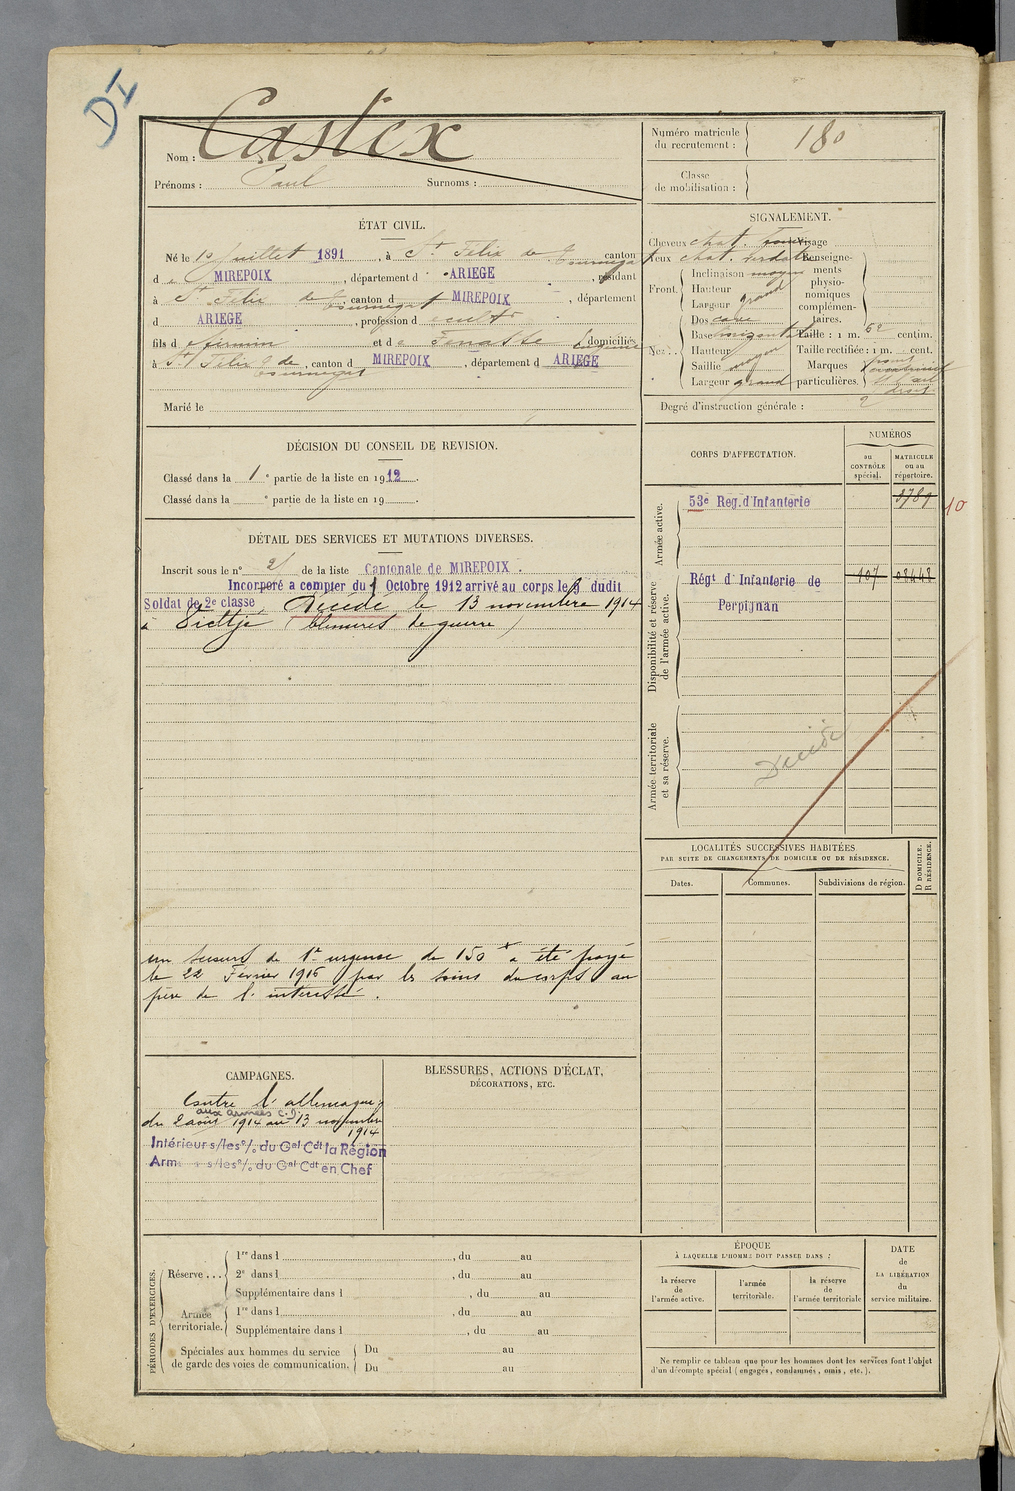 DI
Nom : Castex
Prénoms : Paul Surnoms :
Numéro matricule du recrutement : 180
Classe de mobilisation :
ÉTAT CIVIL.
Né le 10 Juillet 1891, à St Felix de Tournegat canton
d e MIREPOIX, département d ARIEGE, résidant
à St Felix de Tournegat, canton d MIREPOIX, département
d ARIEGE, profession d cultr
fils d firmin et de Eugénie domiciliés
à St Felix de Tournegat, canton d MIREPOIX, département d ARIEGE
Marié le
SIGNALEMENT.
Cheveux chat.
Yeux chat.
Front. Inclinaison moyen
Hauteur
Largeur grand
Nez. Dos cave
Base horizontale
Hauteur
Saillie moyen
Largeur grand
Visage
Renseignements physionomiques complémentaires.
Taille : 1 m. 62 centim.
Taille rectifiée : 1 m. cent.
Marques particulières.
Degré d'instruction générale : 2
DÉCISION DU CONSEIL DE REVISION.
Classé dans la 1e partie de la liste en 1912.
Classé dans la e partie de la liste en 19
DÉTAIL DES SERVICES ET MUTATIONS DIVERSES.
Inscrit sous le n° 21 de la liste Cantonale de MIREPOIX.
Incorporé a compter du 1 Octobre 1912 arrivé au corps le 9 dudit
Soldat de 2e classe Décédé le 13 novembre 1914
à Vieltje (blessures de guerre)
un secours de 1re urgence de 150 f a été payé
le 22 Février 1916 par les soins du corps au
père de l'intéressé.
CORPS D'AFFECTATION.
NUMÉROS
au CONTRÔLE spécial.
MATRICULE ou au répertoire.
Armée active.
53e Reg. d'Infanterie 3789
10
Disponibilité et réserve de l'armée active.
Régt d'Infanterie de 107 08448
Perpignan
Armée territoriale et sa réserve.
Décédé
LOCALITÉS SUCCESSIVES HABITÉES
PAR SUITE DE CHANGEMENTS DE DOMICILE OU DE RÉSIDENCE.
Dates. Communes. Subdivisions de région.
D DOMICILE.
R RÉSIDENCE.
CAMPAGNES.
Contre l'allemagne
aux armées C.D.
du 2 août 1914 au 13 novembre
1914
Intérieur s/les o/. du Gal Cdt la Région
Arm s/les o/. du Gal Cdt en Chef
BLESSURES, ACTIONS D'ÉCLAT,
DÉCORATIONS, ETC.
PÉRIODES D'EXERCICES.
Réserve ... 1re dans l , du au
2e dans l , du au
Supplémentaire dans l , du au
Armée territoriale. 1re dans l , du au
Supplémentaire dans l , du au
Spéciales aux hommes du service Du au
de garde des voies de communication. Du au
ÉPOQUE
À LAQUELLE L'HOMME DOIT PASSER DANS :
la réserve de l'armée active.
l'armée territoriale.
la réserve de l'armée territoriale
DATE de LA LIBÉRATION du service militaire.
Ne remplir ce tableau que pour les hommes dont les services font l'objet
d'un décompte spécial (engagés, condamnés, omis, etc.).